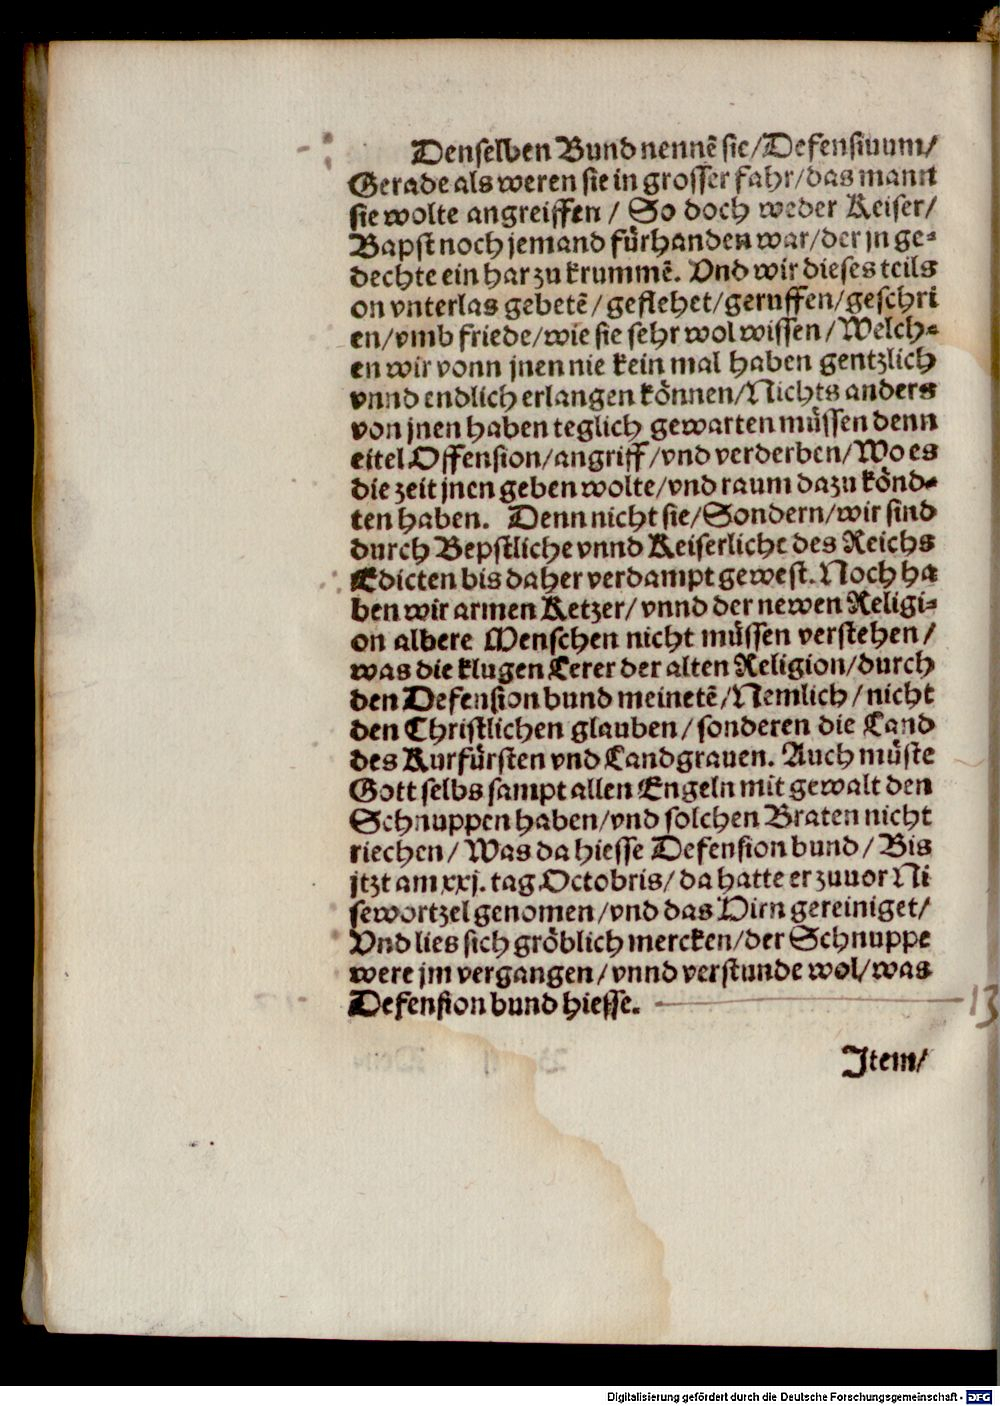 Denselben Bund nennē sie/Defensiuum/
Gerade als weren sie in grosser fahr/das mann
sie wolte angreiffen / So doch weder Keiser/
Bapst noch jemand fürhanden war/der jn ge-
dechte ein har zu krummē. Vnd wir dieses teils
on vnterlas gebetē/geflehet/geruffen/geschri
en/vmb friede/wie sie sehr wol wissen/Welch-
en wir vonn jnen nie kein mal haben gentzlich
vnnd endlich erlangen können/Nichts anders
von jnen haben teglich gewarten müssen denn
eitel Offension/angriff/vnd verderben/Wo es
die zeit jnen geben wolte/vnd raum dazu könd-
ten haben. Denn nicht sie/Sondern/wir sind
durch Bepstliche vnnd Keiserliche des Reichs
Edicten bis daher verdampt gewest. Noch ha
ben wir armen Ketzer/vnnd der newen Religi-
on albere Menschen nicht müssen verstehen/
was die klugen Lerer der alten Religion/durch
den Defension bund meinetē/Nemlich/nicht
den Christlichen glauben/sonderen die Land
des Kurfürsten vnd Landgrauen. Auch müste
Gott selbs sampt allen Engeln mit gewalt den
Schnuppen haben/vnd solchen Braten nicht
riechen/ Was da hiesse Defension bund/ Bis
jtzt am xxj. tag Octobris/da hatte er zuuor Ni
sewortzel genomen/vnd das Hirn gereiniget/
Vnd lies sich gröblich mercken/der Schnuppe
were jm vergangen/vnnd verstunde wol/was
Defension bund hiesse. 13
Item/
Digitalisierung gefördert durch die Deutsche Forschungsgemeinschaft - DFG